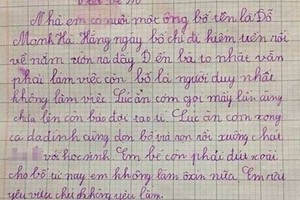 Nhà em có nuôi một ông bố tên là Đỗ
Mạnh Hà Hằng ngày bố chỉ đi hiên trên rồi
về nằm ườn ra đấy Đến bà to nhất vẫn
phải làm việc còn bố là người duy nhất
không làm việc Lúc ăn cơm gọi mấy lần cũng
chưa lên còn bảo đợi tao tí Lúc ăn cơm xong
cả da đình cũng dọn bố và rọn rồi xuống chát
với học sinh Em bé còn phải đưa xoài
cho bố từ nay em không làm ôxin nữa Em rất
yêu vua chứ không yêu lắm.